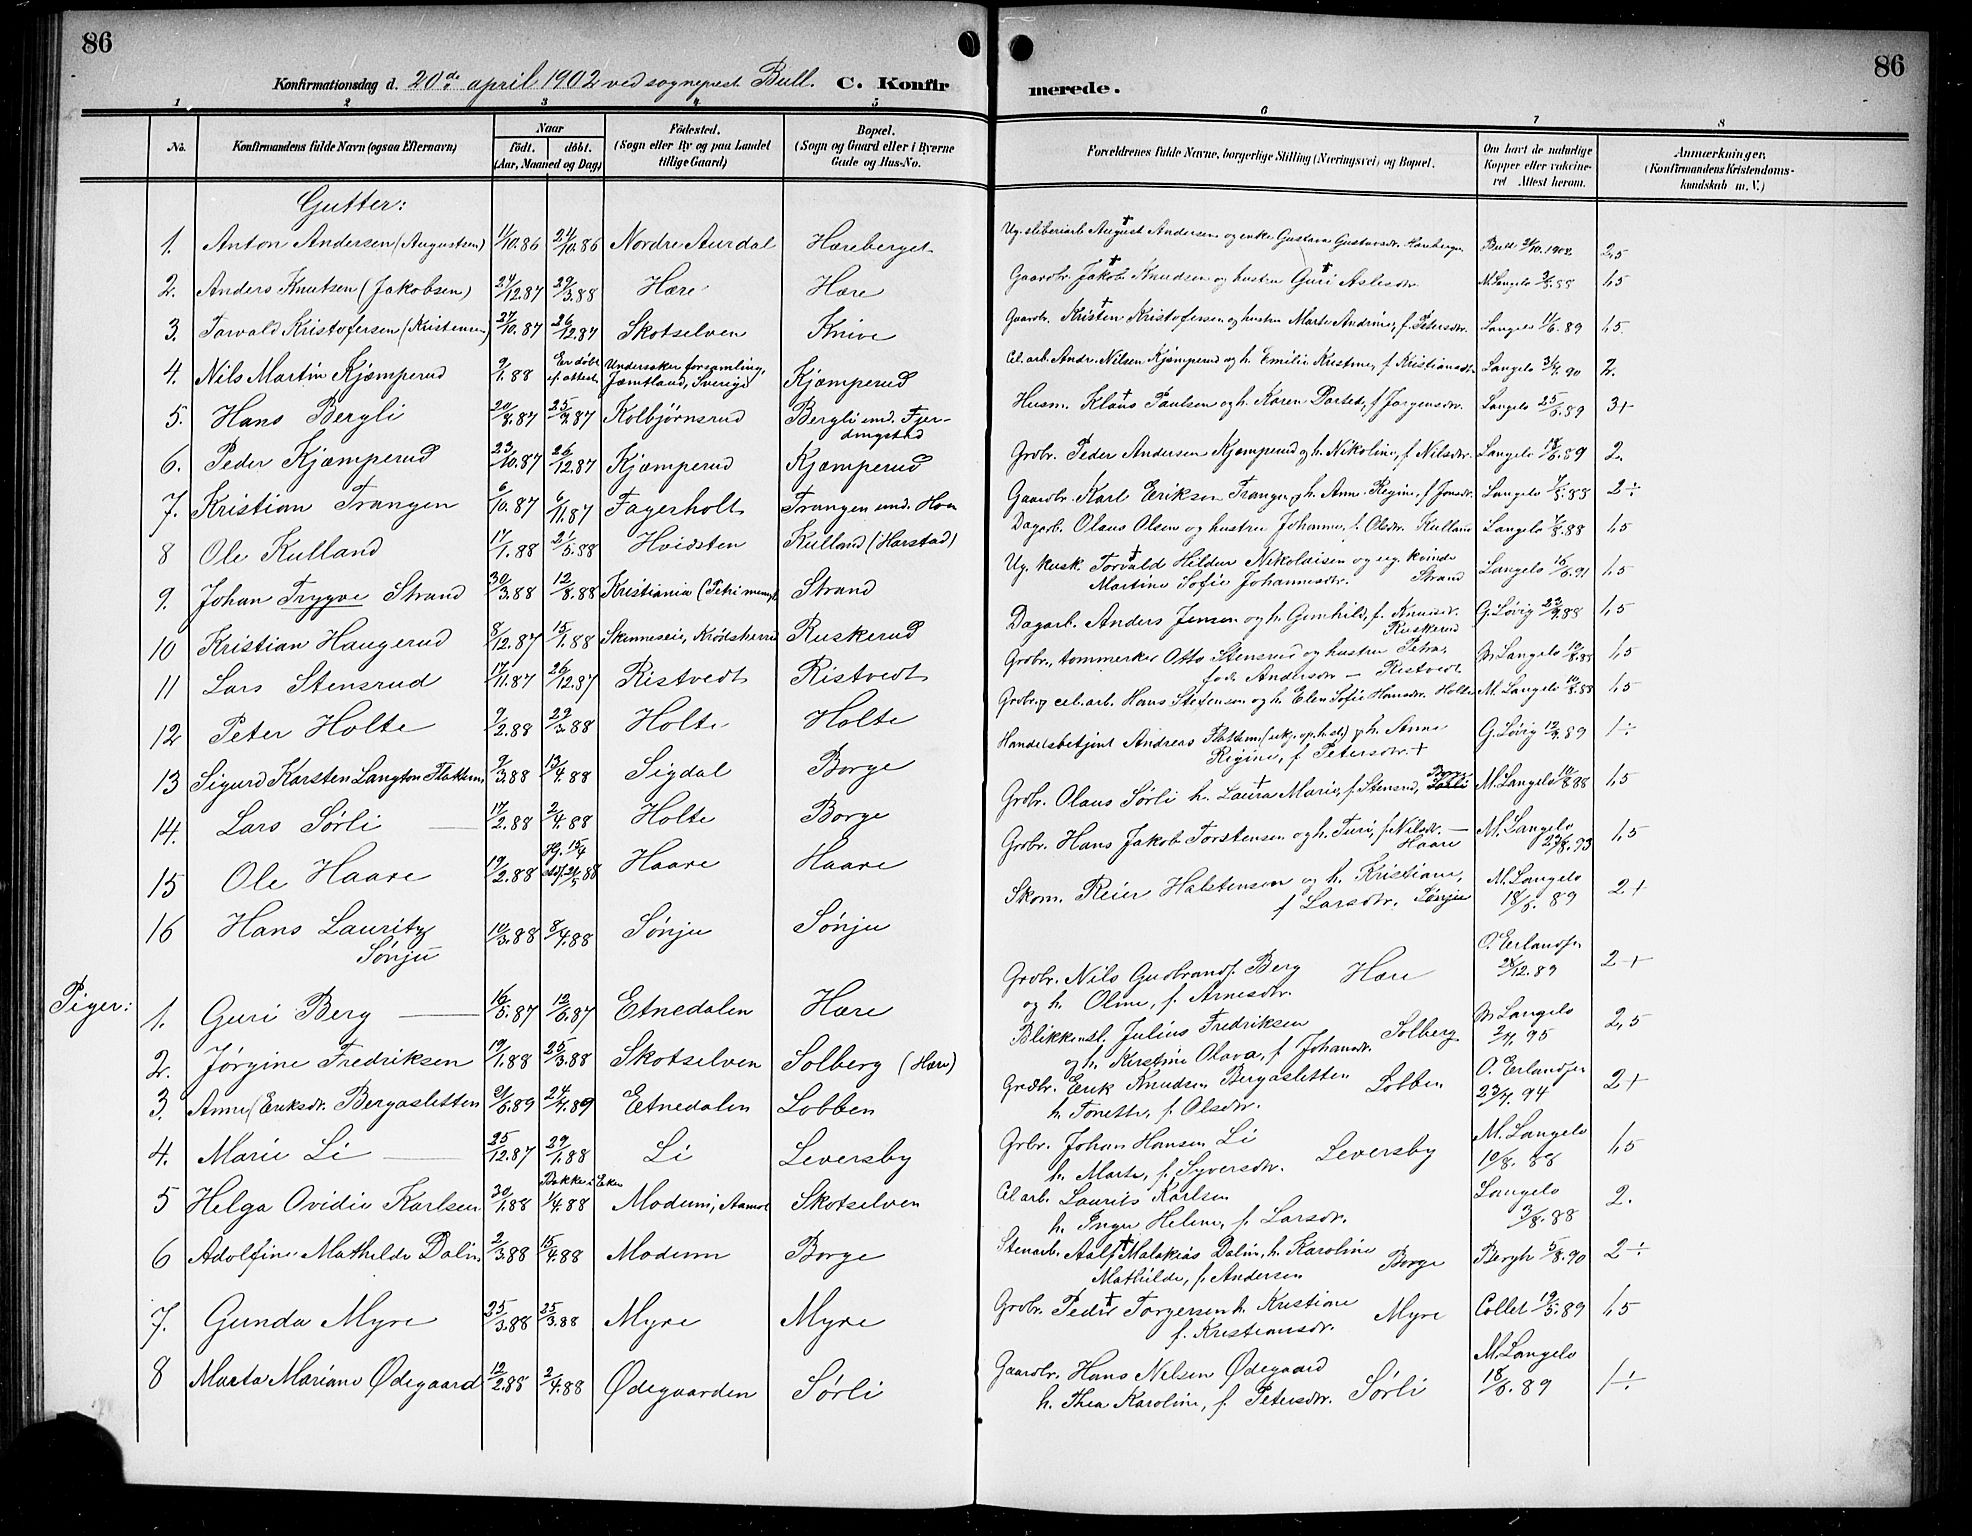 86
86
Konfirmationsdag d. 20de april 1902 ved sogneprest Bull. C. Konfirmerede.
1 2 3 4 5 6 7 8
No. | Konfirmandens fulde Navn (ogsaa Efternavn) | Naar født. døbt. (Aar, Maaned og Dag) | Fødested. (Sogn eller By og paa Landet tillige Gaard) | Bopæl. (Sogn og Gaard eller i Byerne Gade og Hus-No. | Forældrenes fulde Navne, borgerlige Stilling (Næringsvei) og Bopæl. | Om havt de naturlige Kopper eller vakcineret Attest herom. | Anmærkninger. (Konfirmandens Kristendomskundskab m. V.)
Gutter:
1. Anton Andersen (Augustsen) 11/10.86 24/10.86 Nordre Aurdal Hæreberget Ug. sliberiarb. August † Andersen og enke Gustava Gustavsdr. Hæreberget 2,5
2. Anders Knutsen (Jakobsen) 24/12.87 29/3.88 Hære Hære Gaardbr. Jakob † Knudsen og hustru Guri † Aslesdr. M. Langelo 1,5
3. Torvald Kristofersen (Kristensen) 27/10.87 26/12.87 Skotselven Knive Gaardbr. Kristen † Kristofersen og hustru Marte Andrine, f. Petersdr. Langelo 11/6.89 1,5
4. Nils Martin Kjæmperud 9/1.88 Er døbt if. attest Undersaker forsamling, Jæmtland, Sverige Kjæmperud Cel. arb. Andr. Nilsen Kjæmperud og h. Emilie Kristine, f. Kristiansdr. Langelo 2.
5. Hans Bergli 20/8.87 25/9.87 Kolbjørnsrud Bergli und. Fjerdingstad Husm. Klaus † Paulsen og h. Karen Dortea, f. Jørgensdr. Langelo 25/6.89 3+
6. Peder Kjæmperud 23/10.87 26/12.87 Kjæmperud Kjæmperud Grdbr. Peder Andersen Kjæmperud og h. Nikoline, f. Nilsdr. Langelo 18/6.89 2.
7. Kristian Trangen 6/10.87 6/11.87 Fagerholt Trangen und. Hoen Gaardbr. Karl Eriksen Trangen og h. Anne Regine, f. Jonsdr. Langelo 7/8.88 2÷
8 Ole Kulland 17/1.88 21/5.88 Hvidsten Kulland (Harstad) Dagarb. Olaus Olsen og hustru Johanne, f. Olsdr. Kulland Langelo 7/8.88 1,5
9. Johan Trygve Strand 30/3.88 12/8.88 Kristiania (Petri menigh. Strand Ug. kusk. Torvald † Hildur Nikolaisen og ug. kvinde Martine Sofie Johannesdr. Strand Langelo 16/6.91 1,5
10 Kristian Haugerud 8/12.87 15/1.88 Skinneseie, Krødsherred Ruskerud Dagarb. Anders Jensen og h. Gunhild, f. Knutsdr. Ruskerud G. Løvig 1,5
11 Lars Stensrud 17/11.87 26/12.87 Ristvedt Ristvedt Grdbr., tømmerker Otto Stensrud og hustru Petra, født Andersdr. — Ristvedt. M. Langelo 1,5
12 Peter Holte 9/2.88 29/3.88 Holte Holte Grdbr. og cel. arb. Hans Steffensen og h. Elen Sofie Hansdr. Holte M. Langelo 1,5
13 Sigurd Karsten Langton Flattum 9/3.88 13/4.88 Sigdal Borge Handelsbetjent Andreas Flattum og h. Anne Regine, f. Petersdr. † G. Løvig 12/7.89 1÷
14. Lars Sørli — 17/2.88 2/4.88 Holte Borge Grdbr. Olaus Sørli h. Laura † Marie, f. Stensrud, Borge M. Langelo 1,5
15 Ole Haare 19/2.88 Hj. 15/4 stdf. 21/5 88 Haare Haare Grdbr. Hans Jakob Torstensen og h. Turi, f. Nilsdr. — Haare M. Langelo 1,5
16 Hans Lauritz Sønju 10/3.88 8/4.88 Sønju Sønju Skom. Reier Halstensen og h. Kristiane, f. Larsdr. Sønju M. Langelo 18/6.89 2+
Piger:
1. Guri Berg — 16/5.87 12/6.87 Etnedalen Hære Grdbr. Nils Gudbrands. Berg og h. Oline, f. Arnesdr. Hære O. Erlandsen 28/12.89 2+
2. Jørgine Fredriksen 19/1.88 25/3.88 Skotselven Solberg (Hære) Blikkensl. Julius Fredriksen og h. Kirstine Olava, f. Johansdr. Solberg M. Langelo 2/7.95 2,5
3. Anne (Eriksdr. Bergasletten 21/6.89 24/7.89 Etnedalen Lobben Grdbr. Erik Knudsen Bergasletten h. Tonette, f. Olsdr. Lobben O. Erlandsen 23/7.94 2+
4. Marie Li — 25/12.87 29/1.88 Li Leversby Grbr. Johan Hansen Li h. Marte, f. Syversdr. Leversby M. Langelo 10/8.88 1,5
5 Helga Ovidie Karlsen 30/1.88 Bakke i Eken 1/4.88 Modum, Aamot Skotselven Cel arb. Laurits Karlsen h. Inger Helene, f. Larsdr. Langelo 3/8.88 2.
6 Adolfine Mathilde Dalin 2/3.88 15/4.88 Modum Borge Stenarb. Adolf † Malakias Dalin, h. Karoline Mathilde, f. Andersen Borge Bergh 5/8.90 2÷
7. Gunda Myre 25/3.88 25/3.88 Myre Myre Grdbr. Peder † Torgersen h. Kristiane f. Kristiansdr. Myre Collet 19/5.89 1,5
8 Marta Mariane Ødegaard 12/2.88 2/4.88 Ødegaarden Sørli Gaardbr. Hans Nelsen Ødegaard h. Thea Karoline, f. Petersdr. Sørli M. Langelo 18/6.89 1÷